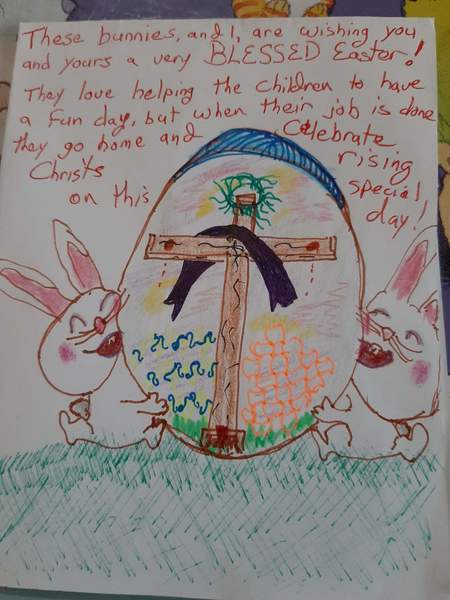 These bunnies, and I, are wishing you
and yours a very BLESSED Easter!
They love helping the children to have
a fun day, but when their job is done
they go home and Celebrate
Christs rising
on this special
day!